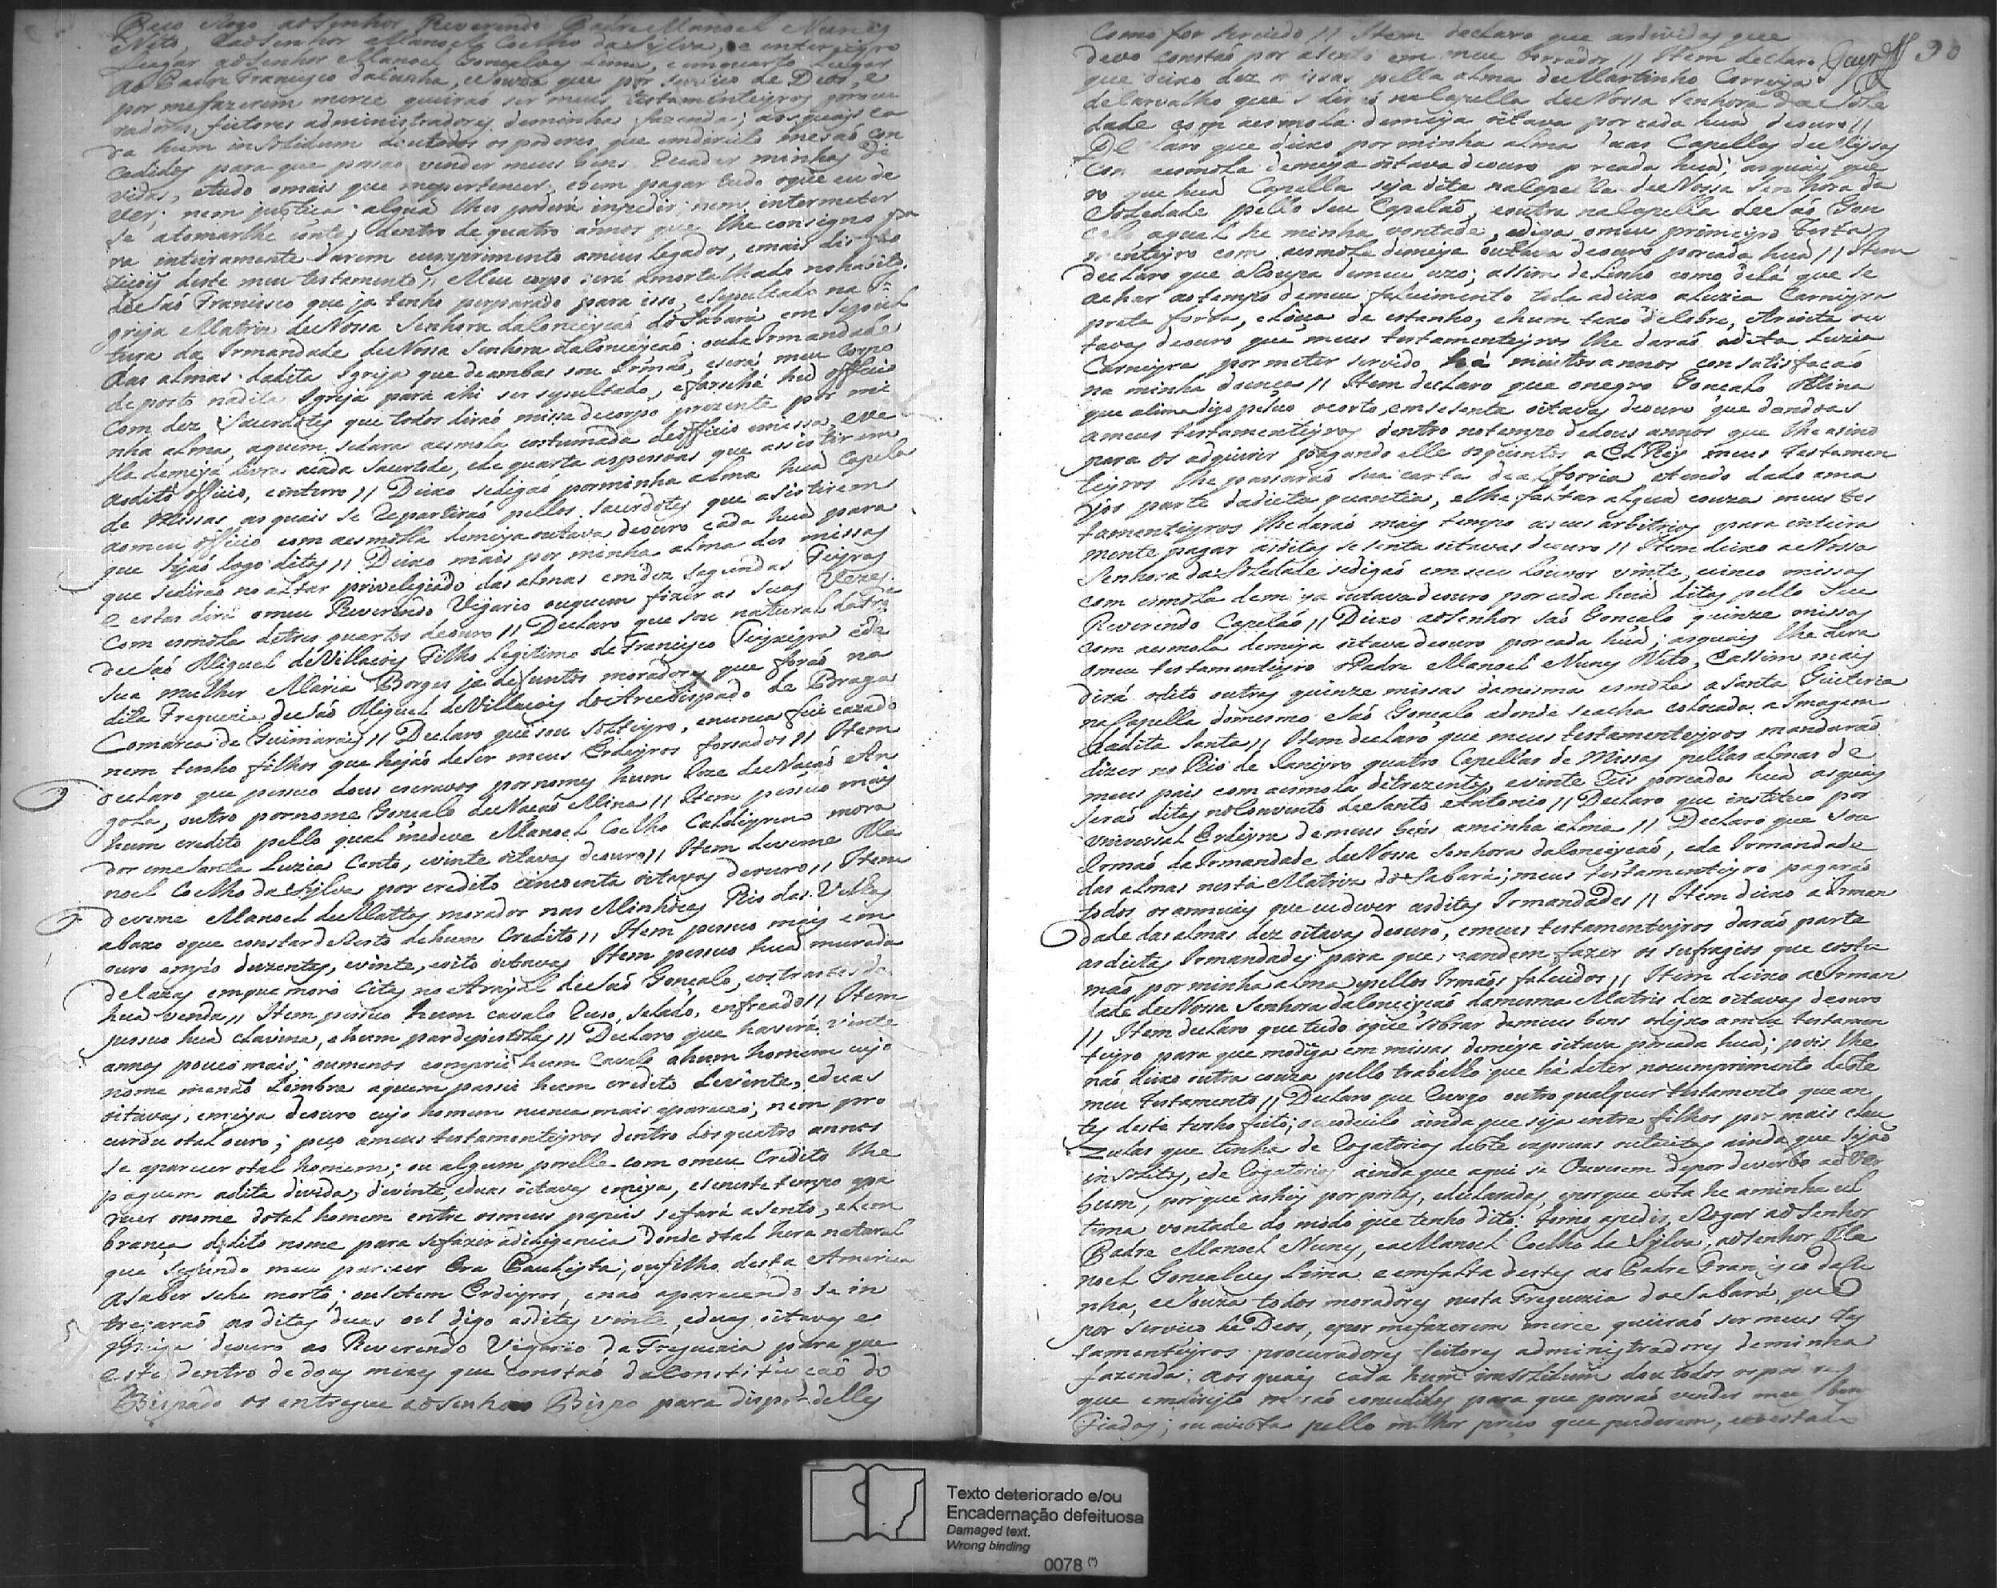 Peço e Rogo ao Senhor Reverendo Padre Manoel Nunes
Neto, e ao Senhor Manoel Coelho da Sylva, e em terceyro
Lugar ao Senhor Manoel Gonçalves Lima, e em quarto Lugar
ao Padre Francisco da Cunha, e Souza que por serviço de Deos, e
por me fazerem merce queirão ser meus testamenteyros procu
radores, feitores administradores de minha fazenda; aos quais ca
da hum in solidum dou todos os poderes, que em direito me são con
cedidos para que possão vender meus bens Cobrar minhas di
vidas, e tudo o mais que me pertencer, e bem pagar tudo o que eu de
ver; nem justiça alguã lhes poderá impedir nem intermeter
se a tomar lhe conta, dentro de quatro annos que lhe consigno pa
ra inteiramente darem cumprimento a meus legados, e mais dispo
ziçois deste meu testamento; Meu corpo será amortalhado no habito
de São Francisco que ja tenho preparado para isso, e sepultado na I
greja Matriz de Nossa Senhora da Conceiçaõ do Sabará em sepul
tura da Irmandade de Nossa Senhora da Conceiçaõ; ou da Irmandade
das almas da dita Igreja que de ambas sou Irmão, e será meu corpo
deposto na dita Igreja para ahi ser sepultado, e farseha hu officio
com dez Sacerdotes que todos dirão missa de corpo prezente por mi
nha alma, a quem se dara a esmola costumada de officio e missa, e ve
lla de meya livra a cada Sacerdote, e de quarta as pessoas que assistirem
ao dito officio, e enterro // Deixo se digaõ por minha alma huã Capela
de Missas as quais se repartiraõ pellos Sacerdotes que asistirem
ao meu officio com a esmolla de meya outava de ouro cada huã para
que sejaõ logo ditas // Deixo mais por minha alma des missas
que se dirão no altar privelegiado das almas em dez segundas Feyras
e estas dirá o meu Reverendo Vigario ou quem fizer as suas Vezes
com esmolla de tres quartos de ouro // Declaro que sou natural da Fr.
de São Miguel de Villarois Filho Legitimo de Francisco Teyxeyra e de
sua mulher Maria Borges ja defuntos moradores que foraõ na
dita Freguezia de São Miguel de Villarois do Arcebispado de Braga
Comarca de Guimarães // Declaro que sou solteyro, e nunca fui cazado
nem tenho filhos que hajaõ de ser meus Erdeyros forsados // Item
declaro que possuo dous escravos por nomes hum Joze de Nação An
gola, outro por nome Gonçalo de Nação Mina // Item possuo mais
hum credito pello qual me deve Manoel Coelho Caldeyra mora
dor em Santa Luzia Cento, e vinte oitavas de ouro // Item deveme Ma
noel Coelho da Sylva por credito cincoenta oitavas de ouro // Item
deveme Manoel de Mattos morador nas Minhocas Rio das Velhas
abaxo o que constar de Resto de hum Credito // Item possuo mais em
ouro em pó duzentas, e vinte, e oito oitavas Item possuo huã murada
de Cazas em que moro citas no Arrayal de São Gonçalo, cos trastes de
huã venda // Item possuo hum cavalo Ruso, selado, e enfreado // Item
possuo huã clavina, e hum par de pistolas // Declaro que haverá vinte
annos pouco mais; ou menos comprei hum Cavalo a hum homem cujo
nome me não Lembra a quem passei hum credito de vinte, e duas
oitavas, e meya de ouro cujo homem nunca mais apareceo; nem pro
curou o tal ouro; peço a meus testamenteyros dentro dos quatro annos
se aparecer o tal homem; ou algum por elle com o meu Credito lhe
paguem a dita divida, de vinte, e duas oitavas e meya, e se neste tempo apa
recer o nome do tal homem entre os meus papeis se fará asento, e Lem
brança do dito nome para se fazer a diligencia donde o tal hera natural
que segundo meu parecer Era Paulista; ou filho desta America
a saber se he morto; ou se tem Erdeyros, e não aparecendo se in
tregaraõ as ditas duas oit digo as ditas vinte, e duas oitavas e
meya de ouro ao Reverendo Vigario da Freguezia para que
este dentro de dous mezes que constaõ da Constituição do
Bispado os entregue ao Senhor Bispo para dispor delles
Como for servido // Item declaro que as dividas que
devo constão por asento em meu borrador // Item declaro
que deixo dez missas pella alma de Martinho Correya
de Carvalho que se dirão na Capella de Nossa Senhora da Sole
dade com a esmola de meya oitava por cada huã de ouro //
Declaro que deixo por minha alma duas Capellas de Missas
Com a esmola de meya oitava de ouro por cada huã; as quais que
ro que huã Capella seja dita na Capella de Nossa Senhora da
Soledade pello seu Capelão, e outra na Capella de São Gon
calo a qual he minha vontade, a diga o meu primeyro testa
menteyro com a esmola de meya outava de ouro por cada huã // Item
declaro que a Roupa de meu uzo; assim de Linho como de Lã que se
achar ao tempo de meu falecimento toda a deixo a Luzia Carneyra
preta forra, e Louça de estanho, e hum taxo de Cobre, e trinta oi
tavas de ouro que meus testamenteyros lhe daraõ a dita Luzia
Carneyra por me ter servido há muitos annos con satisfação
na minha doença // Item declaro que o negro Gonçalo Mina
que asima digo possuo o corto, em sesenta oitavas de ouro que dandoas
a meus testamenteyros dentro no tempo de dous annos que lhe asino
para os adquirir pagando elle os quintos a El Rey meus testamen
teyros lhe passaraõ sua carta de alforria e tendo dado a ma
yor parte da dita quantia, e lhe faltar alguã couza meus tes
tamenteyros lhe daraõ mais tempo a seus arbitrios para inteira
mente pagar as ditas sesenta oitavas de ouro // Item deixo a Nossa
Senhora da Soledade se digaõ em seu Louvor vinte, e cinco missas
com esmola de meya outava de ouro por cada huã ditas pello Seu
Reverendo Capelão // Deixo ao Senhor São Gonçalo quinze missas
com a esmola de meya oitava de ouro por cada huã; as quais lhe dira
o meu testamenteyro o Padre Manoel Nunes Neto, e assim mais
dirá o dito outras quinze missas da mesma esmola a Santa Quiteria
na Capella do mesmo São Gonçalo adonde se acha colocada a Imagem
da dita Santa // Item declaro que meus testamenteyros mandaraõ
dizer no Rio de Janeyro quatro Capellas de Missas pellas almas de
meus pais com a esmola de trezentos, e vinte Reis por cada huã as quais
seraõ ditas no Convento de Santo Antonio // Declaro que instituo por
universal Erdeyra de meus bens a minha alma // Declaro que sou
Irmaõ da Irmandade de Nossa Senhora da Conceiçaõ, e da Irmandade
das almas nesta Matriz do Sabará; meus testamenteyro pagaraõ
todos os annuais que eu dever as ditas Irmandades // Item deixo a Irman
dade das almas dez oitavas de ouro, e meus testamenteyros daraõ parte
as ditas Irmandades para que mandem fazer os sufragios que costu
maõ por minha alma e pellos Irmãos falecidos // Item deixo a Irman
dade de Nossa Senhora da Conceyçaõ da mesma Matris dez oitavas de ouro
// Item declaro que tudo o que sobrar de meus bens o deyxo a meu testamen
teyro para que mo diga em missas de meya oitava por cada huã; pois lhe
naõ deixo outra couza pello trabalho que há de ter no cumprimento deste
meu testamento // Declaro que Revogo outro qualquer testamento que an
tes deste tenho feito; ou codicilo ainda que seja entre filhos por mais clau
zulas que tenha de Rogatorias deste expressas ou tacitas ainda que sejaõ
insolitas, e de Rogatorias ainda que aqui se Ouvesem de por de verbo ad ver
bum, porque as hey por postas, e declaradas, e porque esta he a minha ul
tima vontade do modo que tenho dito: torno a pedir, e Rogar ao Senhor
Padre Manoel Nunes, e a Manoel Coelho da Sylva, ao Senhor Ma
noel Gonçalves Lima e em falta destes ao Padre Francisco da Cu
nha, e Souza todos moradores nesta Freguezia do Sabará, que
por serviço de Deos, e por me fazerem merce queiraõ ser meus tes
tamenteyros procuradores feitores administradores de minha
fazenda; aos quais cada hum in solidum dou todos os poderes
que em direyto me são concedidos para que possaõ vender meus bens
Fiados; ou avista pello milhor preço que puderem,
90
Texto deteriorado e/ou
Encadernação defeituosa
Damaged text.
Wrong binding
0078 (*)